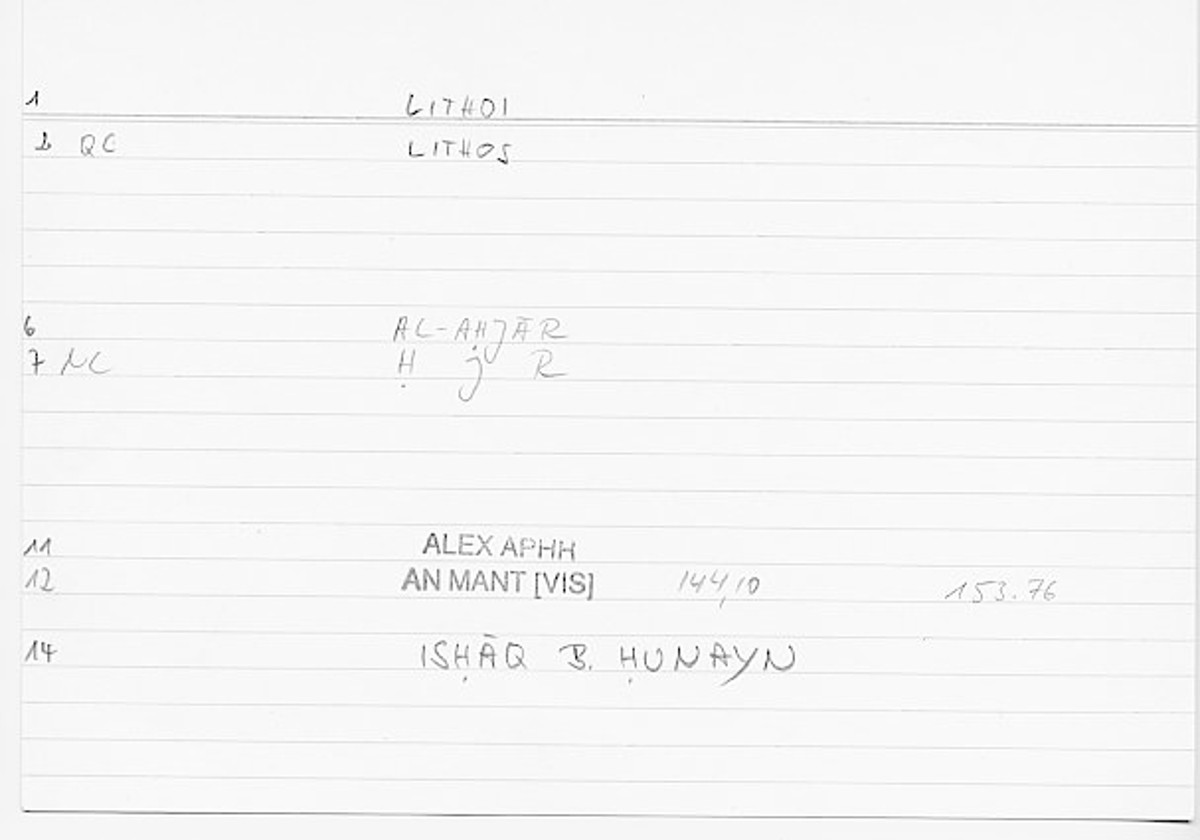 1 LITHOI
2 QC LITHOS
6 AL-AḤJĀR
7 NC Ḥ J R
11 ALEX APHH
12 AN MANT [VIS] 144,10 153.76
14 ISḤĀQ B. ḤUNAYN